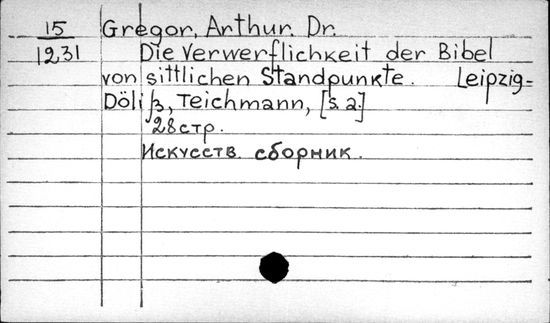 15 Gregor, Arthur. Dr.
1231 Die Verwerflichkeit der Bibel
von sittlichen Standpunkte. Leipzig-
Döliß, Teichmann, [s. a.]
28 стр.
Искусств. сборник.